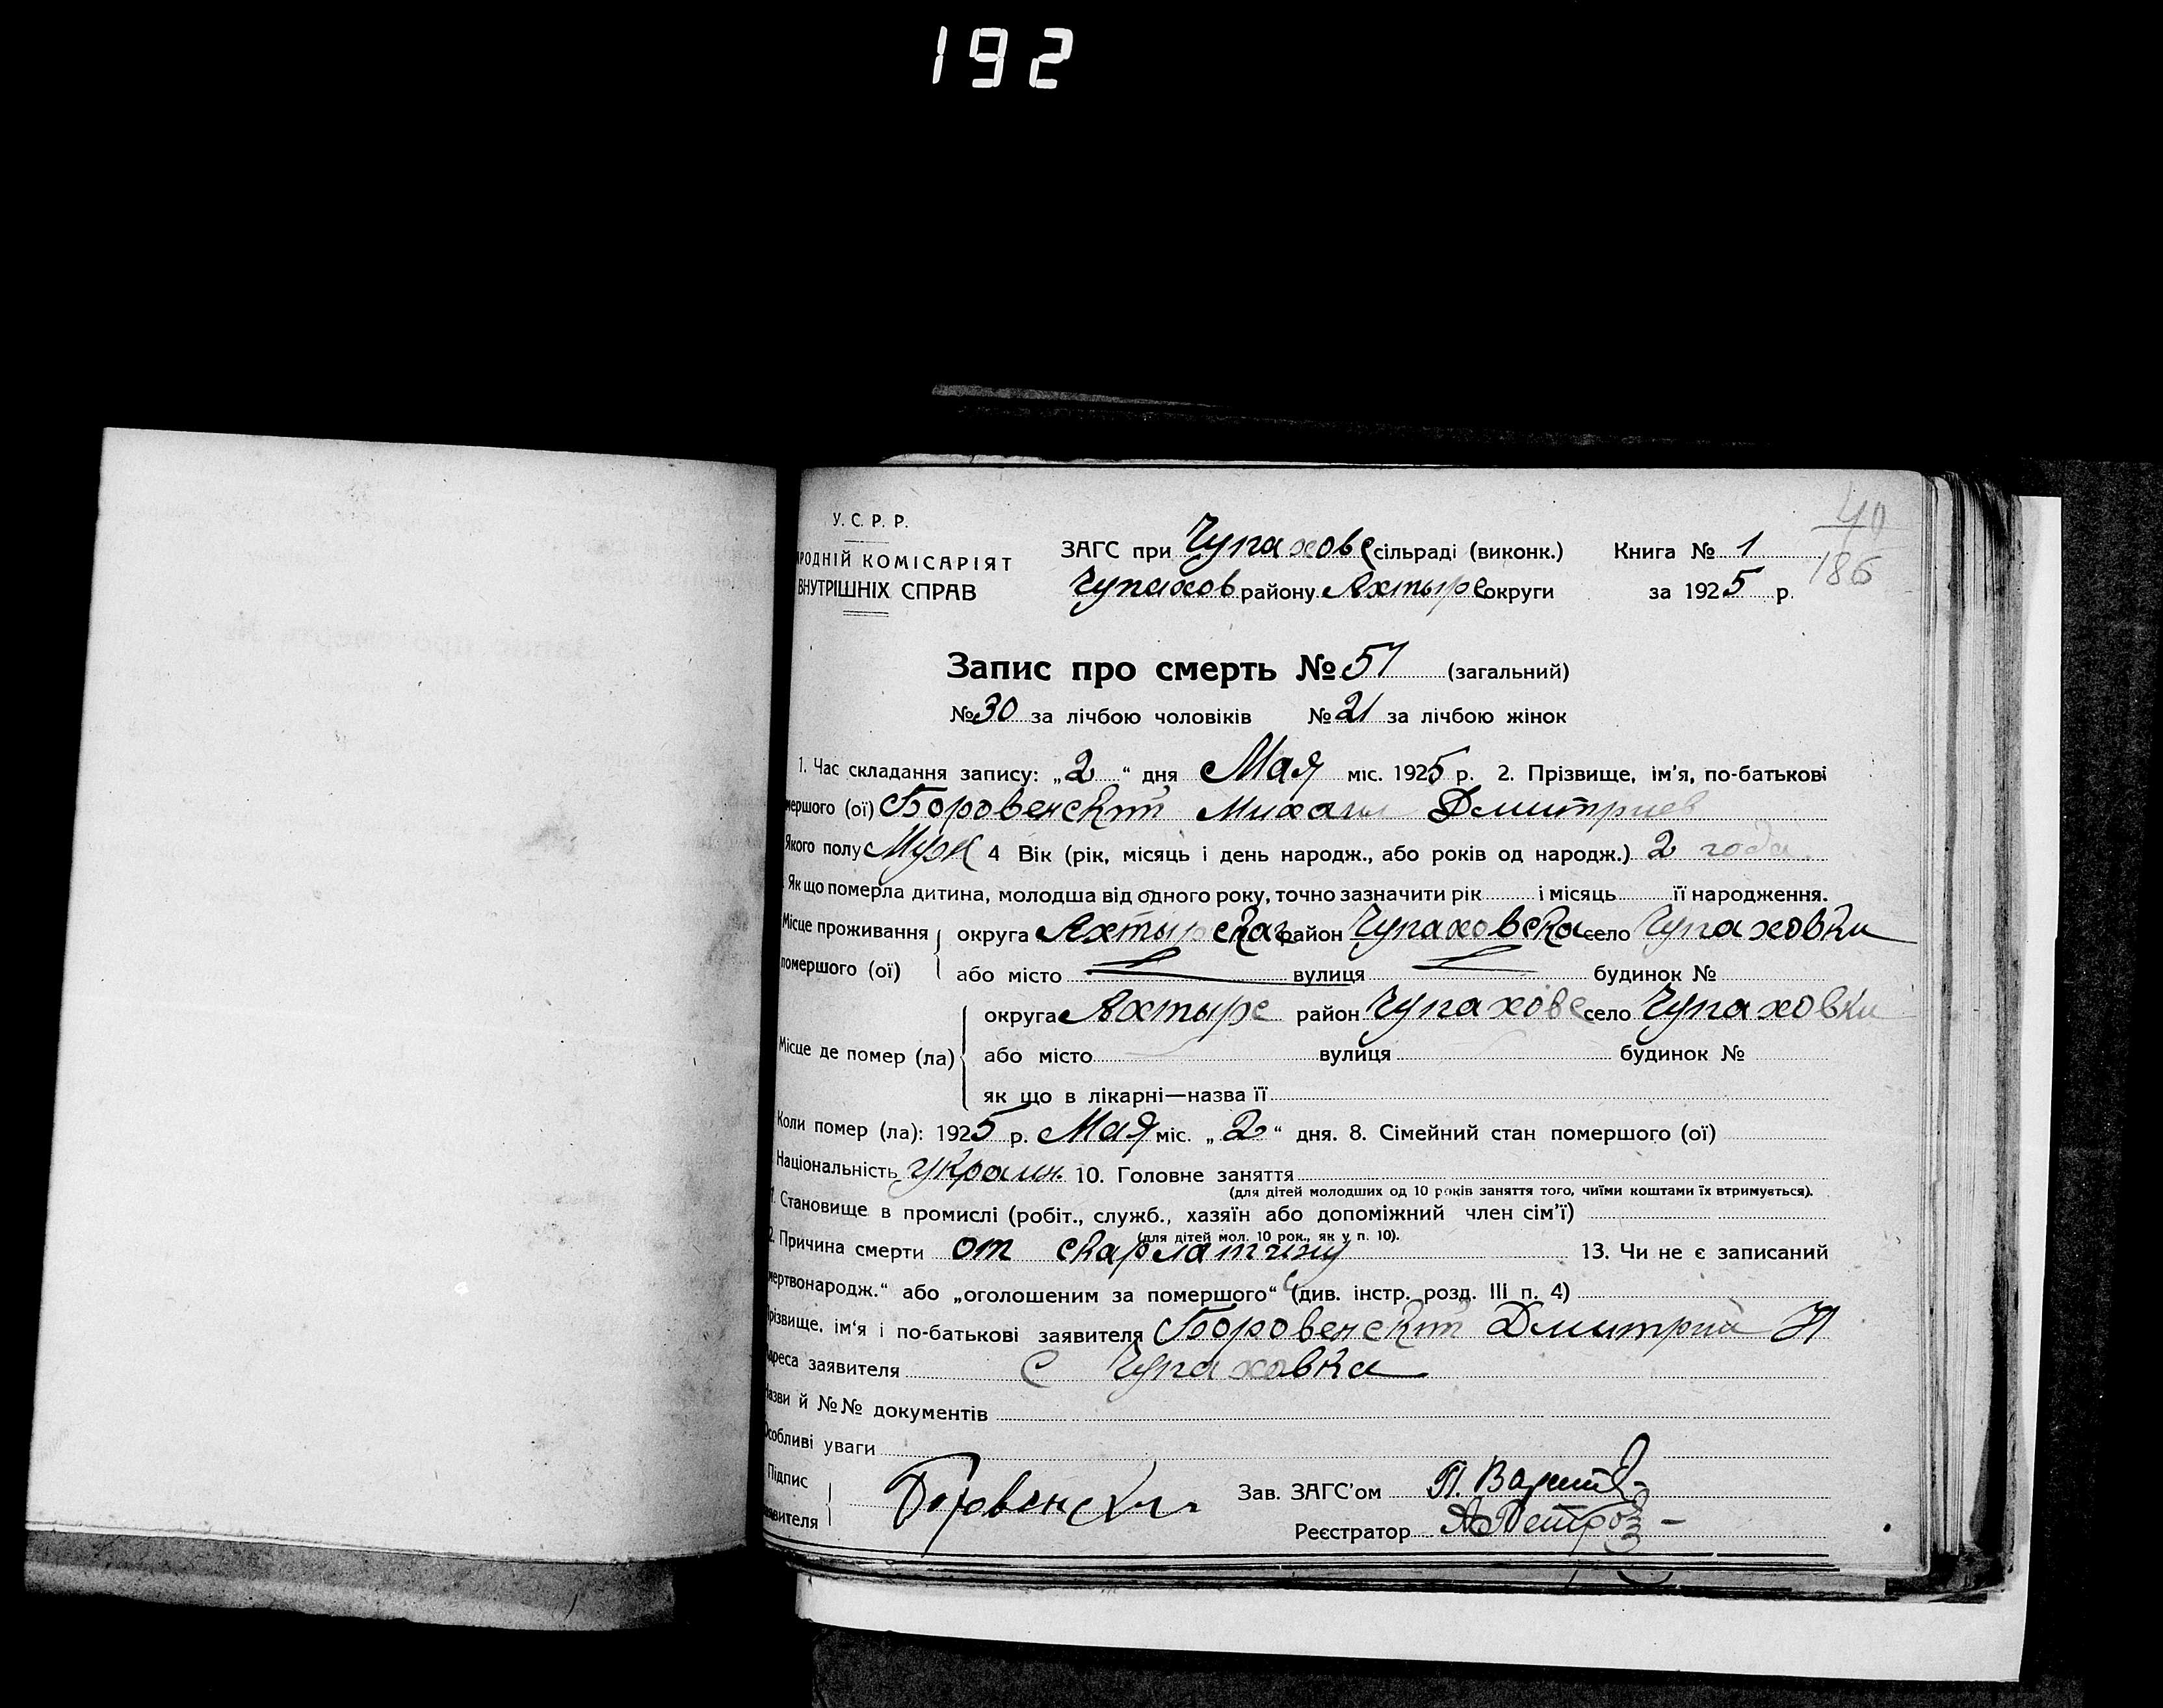 192
40
186
У. С. Р. Р.
РОДНІЙ КОМІСАРІЯТ
ВНУТРІШНІХ СПРАВ
ЗАГС при Чупаховс сільраді (виконк.) Книга № 1
Чупахов району Ахтырс округи за 1925 р.
Запис про смерть № 51 (загальний)
№ 30 за лічбою чоловіків № 21 за лічбою жінок
1. Час складання запису: „2“ дня Мая міс. 1925 р. 2. Прізвище, ім'я, по-батькові
мершого (ої) Боровенский Михаил Дмитриев
Якого полу Муж 4 Вік (рік, місяць і день народж., або років од народж.) 2 года.
Як що померла дитина, молодша від одного року, точно зазначити рік і місяць її народження.
Місце проживання округа Ахтырская район Чупаховска село Чупаховки
помершого (ої) або місто вулиця будинок №
округа Ахтырс район Чупаховс село Чупаховки
Місце де помер (ла) або місто вулиця будинок №
як що в лікарні—назва її
Коли помер (ла): 1925 р. Мая міс. „2“ дня. 8. Сімейний стан помершого (ої)
Національність украин. 10. Головне заняття
(для дітей молодших од 10 років заняття того, чиїми коштами їх втримується).
1. Становище в промислі (робіт., служб., хазяїн або допоміжний член сім'ї)
(для дітей мол. 10 рок., як у п. 10).
2. Причина смерти от скарлатины 13. Чи не є записаний
мертвонародж.“ або „оголошеним за помершого“ (див. інстр. розд. III п. 4)
різвище, ім'я і по-батькові заявителя Боровенский Дмитрий И
дреса заявителя С Чупаховка
Назви й №№ документів
Особливі уваги
Підпис Боровенский Зав. ЗАГС'ом П.
явителя Реєстратор А Петров